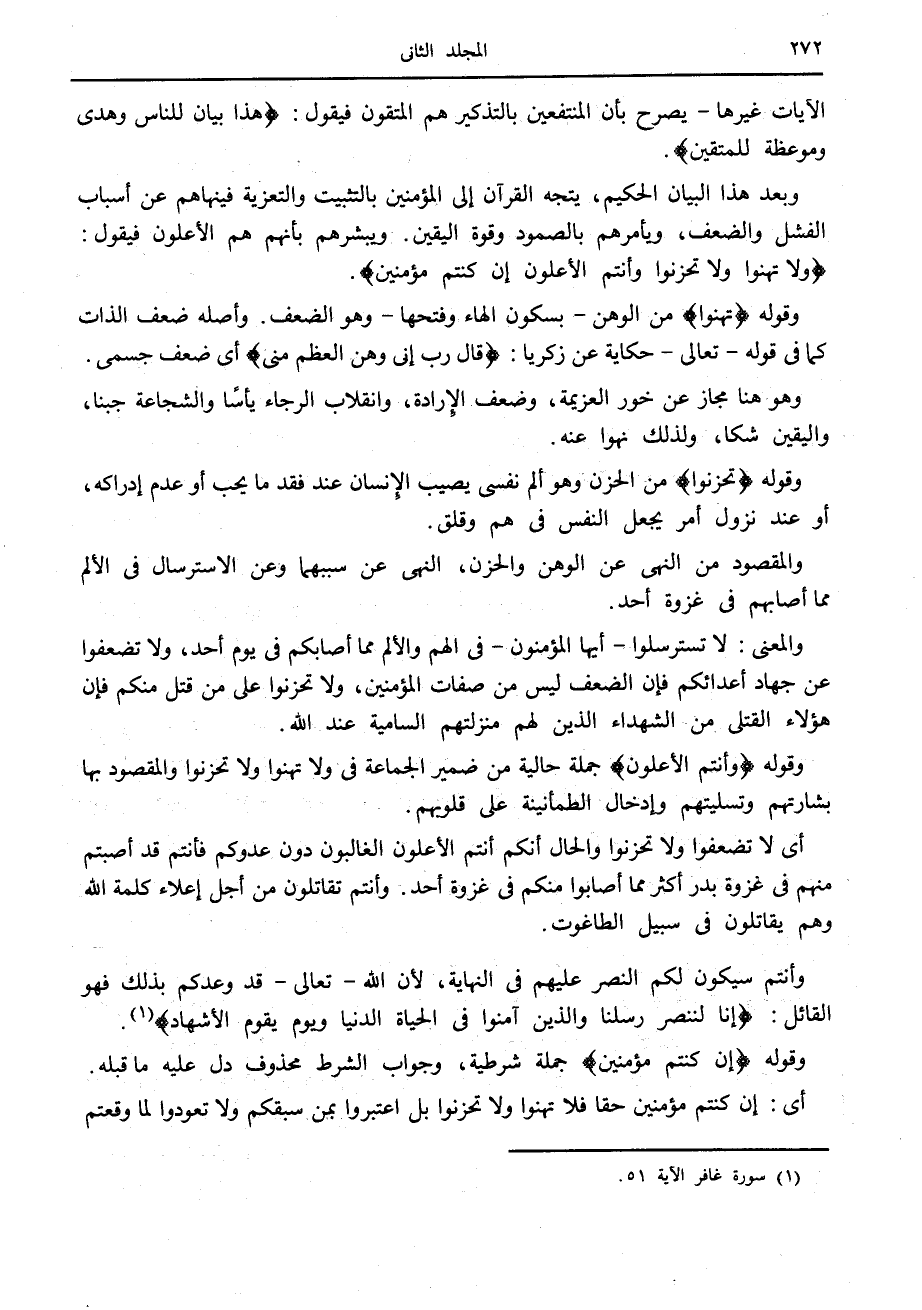 ٢٧٢ المجلد الثانى
الآيات غيرها - يصرح بأن المنتفعين بالتذكير هم المتقون فيقول : ﴿هذا بيان للناس وهدى
وموعظة للمتقين﴾ .
وبعد هذا البيان الحكيم، يتجه القرآن إلى المؤمنين بالتثبيت والتعزية فينهاهم عن أسباب
الفشل والضعف، ويأمرهم بالصمود وقوة اليقين. ويبشرهم بأنهم هم الأعلون فيقول :
﴿ولا تهنوا ولا تحزنوا وأنتم الأعلون إن كنتم مؤمنين﴾.
وقوله ﴿تهنوا﴾ من الوهن - بسكون الهاء وفتحها - وهو الضعف. وأصله ضعف الذات
كما فى قوله - تعالى - حكاية عن زكريا : ﴿قال رب إنى وهن العظم منى﴾ أى ضعف جسمى.
وهو هنا مجاز عن خور العزيمة، وضعف الإرادة، وانقلاب الرجاء يأسًا والشجاعة جبنا،
واليقين شكا، ولذلك نهوا عنه.
وقوله ﴿تحزنوا﴾ من الحزن وهو ألم نفسى يصيب الإنسان عند فقد ما يحب أو عدم إدراكه،
أو عند نزول أمر يجعل النفس فى هم وقلق.
والمقصود من النهى عن الوهن والحزن، النهى عن سببهما وعن الاسترسال فى الألم
مما أصابهم فى غزوة أحد.
والمعنى : لا تسترسلوا - أيها المؤمنون - فى الهم والألم مما أصابكم فى يوم أحد، ولا تضعفوا
عن جهاد أعدائكم فإن الضعف ليس من صفات المؤمنين، ولا تحزنوا على من قتل منكم فإن
هؤلاء القتلى من الشهداء الذين لهم منزلتهم السامية عند الله.
وقوله ﴿وأنتم الأعلون﴾ جملة حالية من ضمير الجماعة فى ولا تهنوا ولا تحزنوا والمقصود بها
بشارتهم وتسليتهم وإدخال الطمأنينة على قلوبهم.
أى لا تضعفوا ولا تحزنوا والحال أنكم أنتم الأعلون الغالبون دون عدوكم فأنتم قد أصبتم
منهم فى غزوة بدر أكثر مما أصابوا منكم فى غزوة أحد. وأنتم تقاتلون من أجل إعلاء كلمة الله
وهم يقاتلون فى سبيل الطاغوت.
وأنتم سيكون لكم النصر عليهم فى النهاية، لأن الله - تعالى - قد وعدكم بذلك فهو
القائل : ﴿إنا لننصر رسلنا والذين آمنوا فى الحياة الدنيا ويوم يقوم الأشهاد﴾(١).
وقوله ﴿إن كنتم مؤمنين﴾ جملة شرطية، وجواب الشرط محذوف دل عليه ما قبله.
أى : إن كنتم مؤمنين حقا فلا تهنوا ولا تحزنوا بل اعتبروا بمن سبقكم ولا تعودوا لما وقعتم
(١) سورة غافر الآية ٥١.